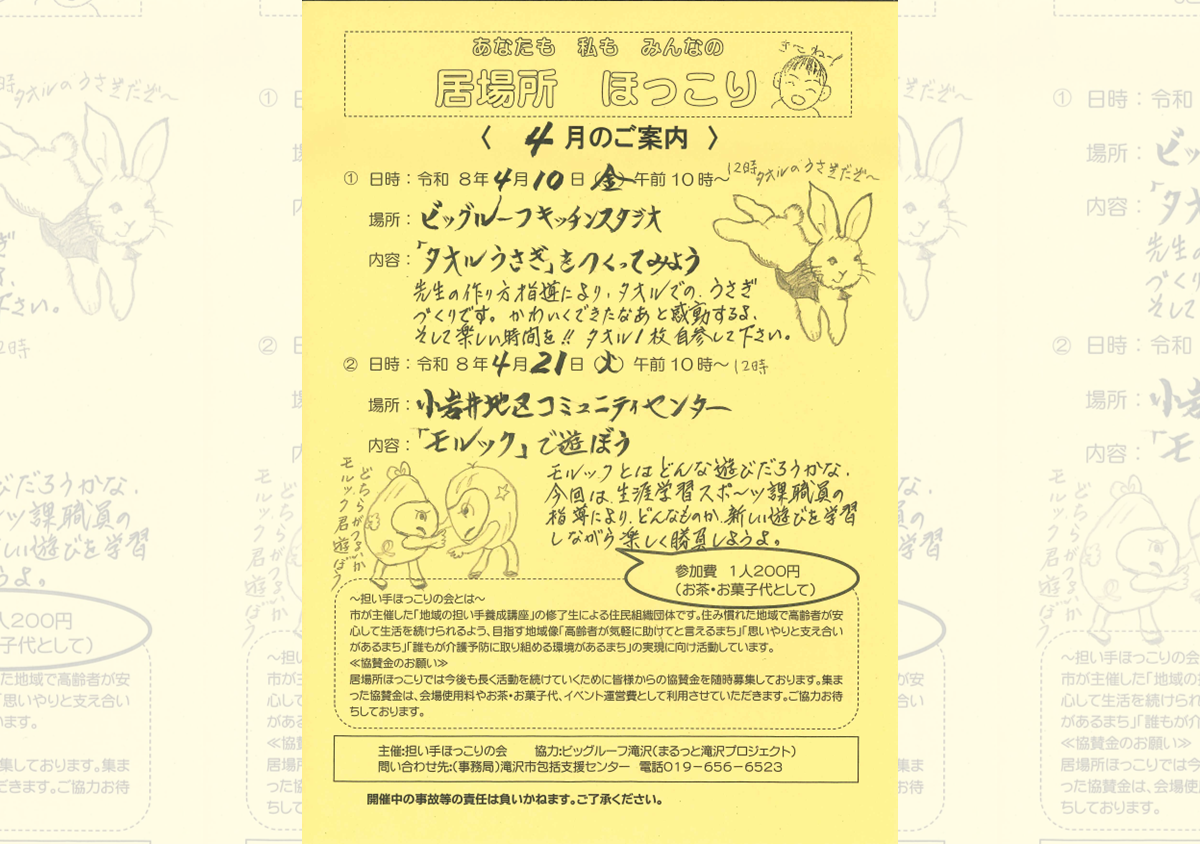 あなたも 私も みんなの
居場所 ほっこり
きてねー!
〈 4月のご案内 〉
① 日時：令和 8年4月10日(金)午前10時～12時
タオルのうさぎだぞ～
場所：ビッグルーフキッチンスタジオ
内容：「タオルうさぎ」をつくってみよう
先生の作り方指導により、タオルでの、うさぎ
づくりです。かわいくできたなあと感動するよ、
そして楽しい時間を!! タオル1枚自参して下さい。
② 日時：令和 8年4月21日(火)午前10時～12時
場所：小岩井地区コミュニティセンター
内容：「モルック」で遊ぼう
どちらがつよいか
モルック君遊ぼう
モルックとはどんな遊びだろうかな、
今回は、生涯学習スポーツ課職員の
指導により、どんなものか、新しい遊びを学習
しながら楽しく勝負しようよ。
参加費 1人200円
（お茶・お菓子代として）
～担い手ほっこりの会とは～
市が主催した「地域の担い手養成講座」の修了生による住民組織団体です。住み慣れた地域で高齢者が安
心して生活を続けられるよう、目指す地域像「高齢者が気軽に助けてと言えるまち」「思いやりと支え合い
があるまち」「誰もが介護予防に取り組める環境があるまち」の実現に向け活動しています。
≪協賛金のお願い≫
居場所ほっこりでは今後も長く活動を続けていくために皆様からの協賛金を随時募集しております。集ま
った協賛金は、会場使用料やお茶・お菓子代、イベント運営費として利用させていただきます。ご協力お待
ちしております。
主催:担い手ほっこりの会 協力:ビッグルーフ滝沢(まるっと滝沢プロジェクト)
問い合わせ先:(事務局)滝沢市包括支援センター 電話019-656-6523
開催中の事故等の責任は負いかねます。ご了承ください。